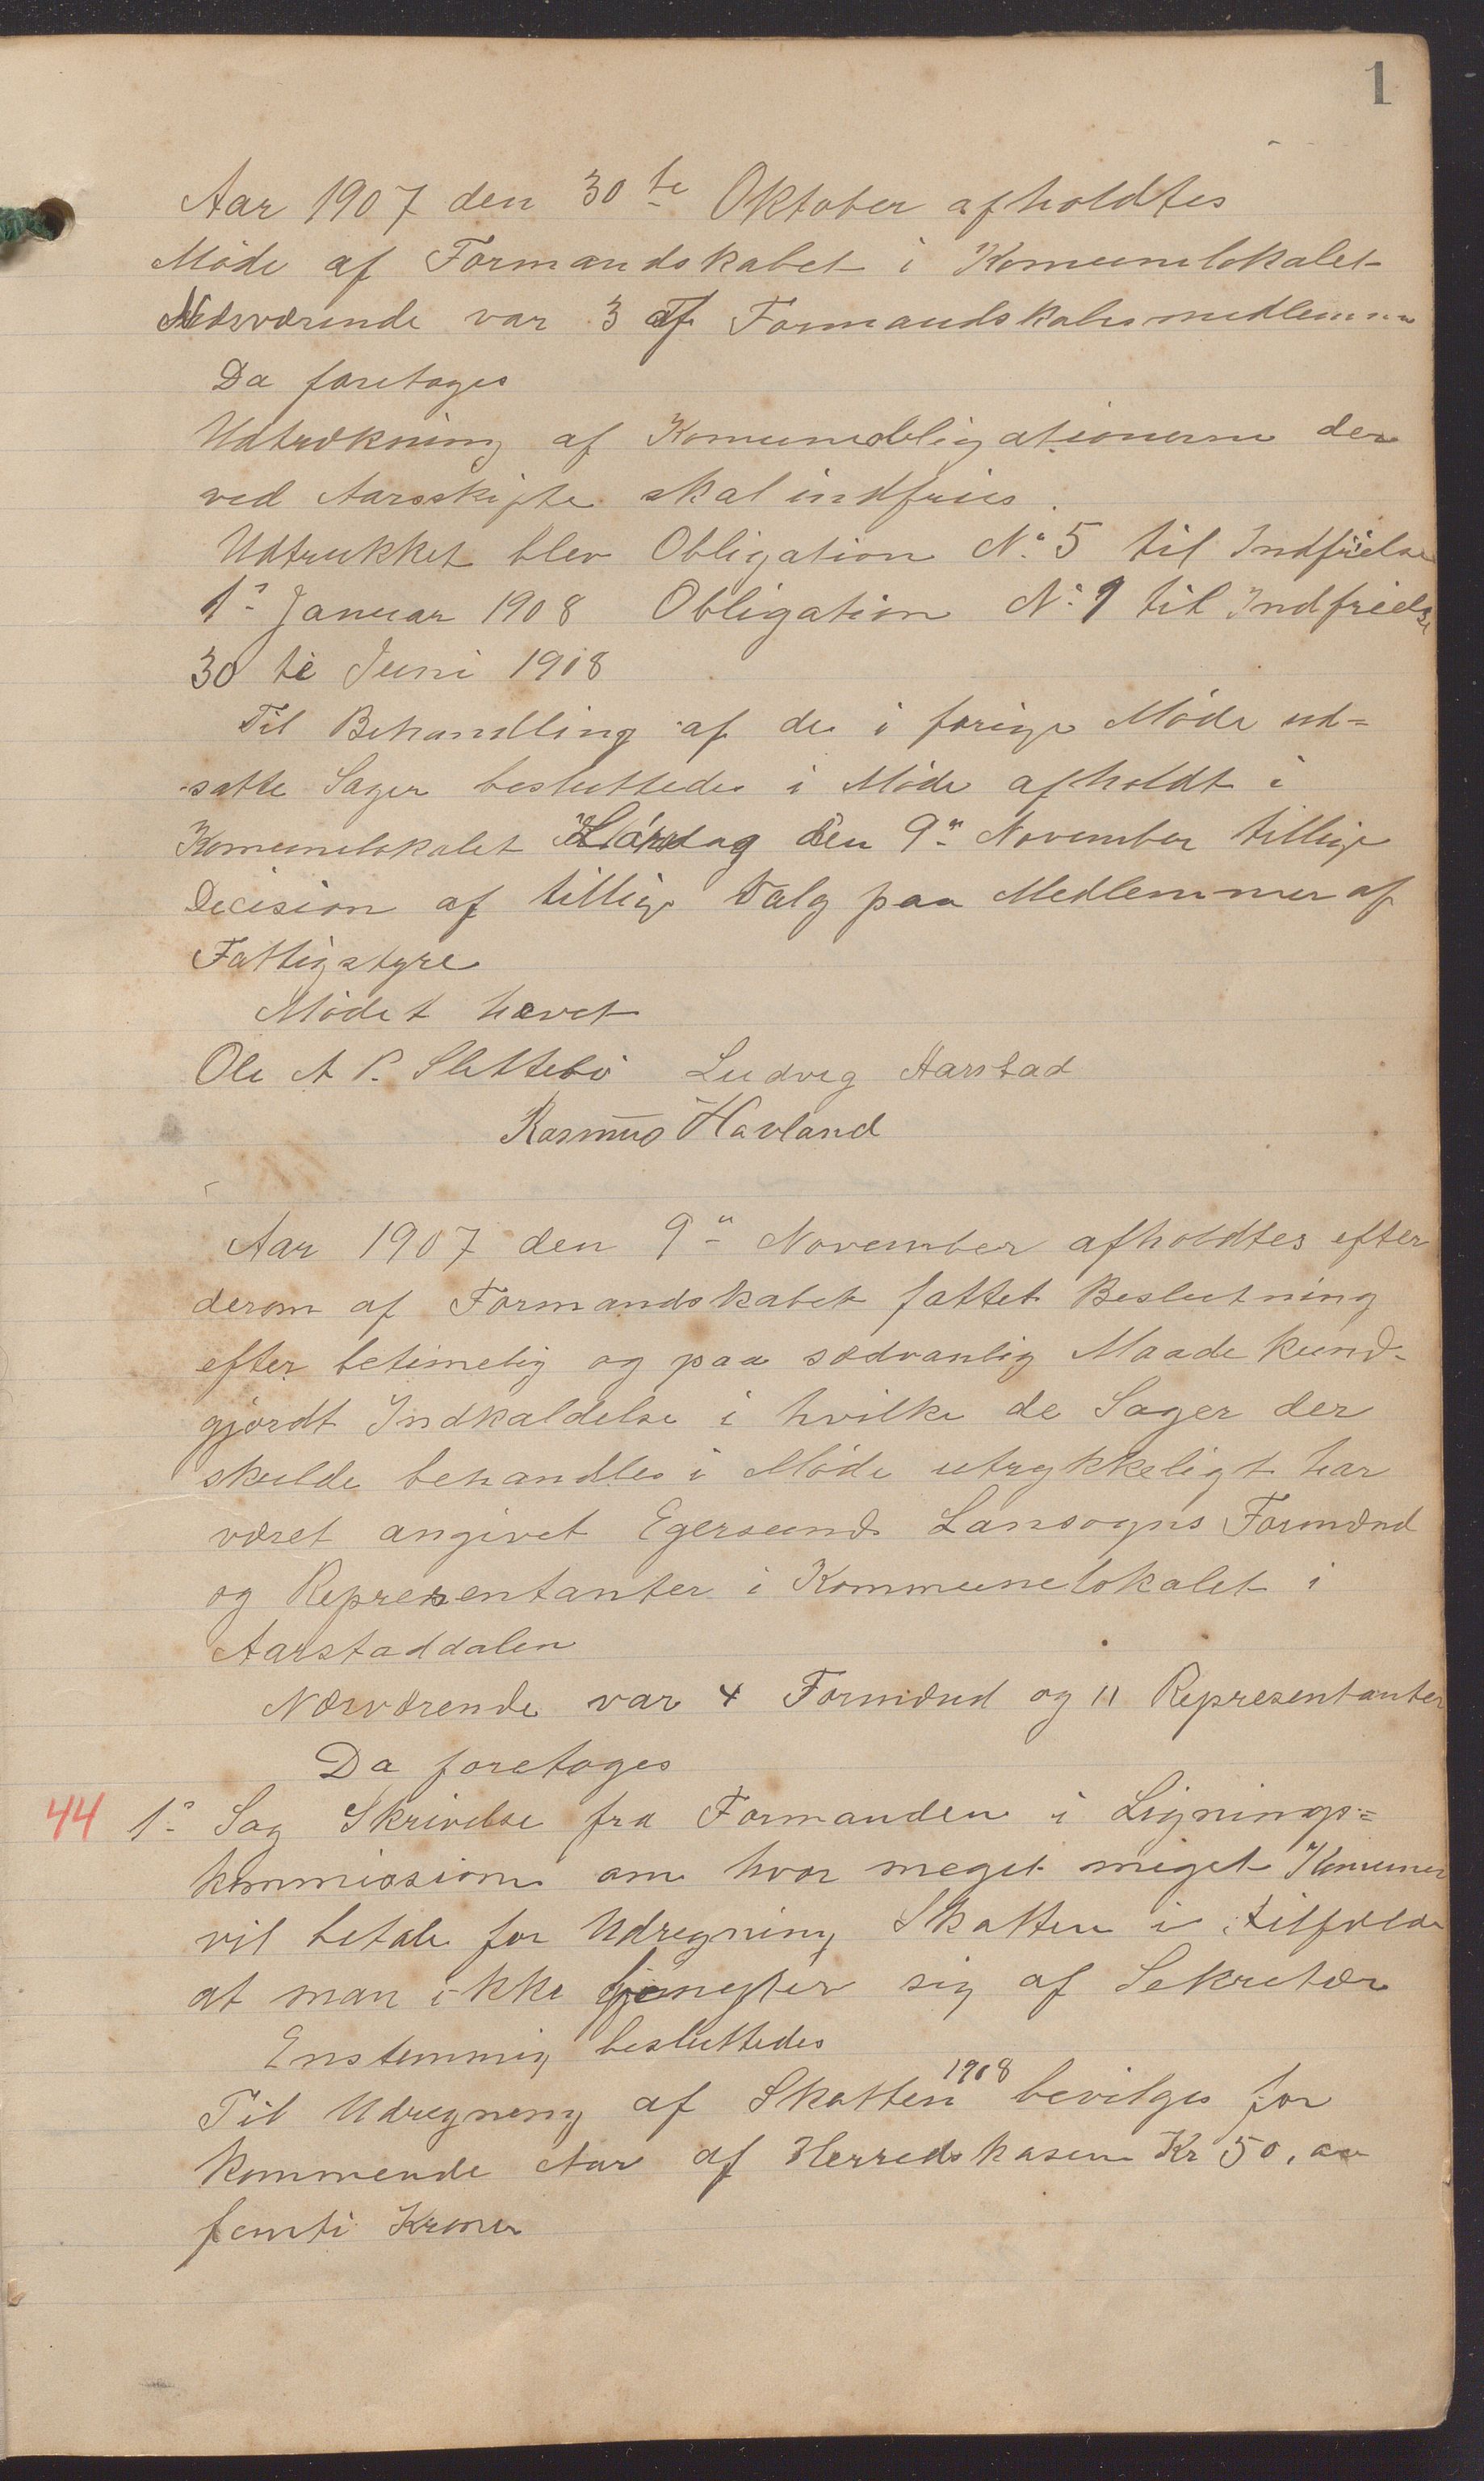 1
Aar 1907 den 30te Oktober afholdtes
Møde af Formandskabet i Komunelokalet
Nærværende var 3 af Formandskabsmedlemmer
Da foretoges
Udtrækning af Komuneobligationerne der
ved Aarsskifte skal indfries.
Udtrukket blev Obligation No 5 til Indfrielse
1ste Januar 1908 Obligation No 9 til Indfrielse
30 te Juni 1908
Til Behandling af de i forige Møde ud=
satte Sager besluttedes i Møde afholdt i
Komunelokalet Lørdag den 9de November tillige
Decision af tillige Valg paa Medlemmer af
Fattigstyre
Mødet hævet
Ole A P. Slettebø Ludvig Aarstad
Rasmus Havland
Aar 1907 den 9de November afholdtes efter
derom af Formandskabet fattet Beslutning
efter betimelig og paa sædvanlig Maade kund-
gjordt Indkaldelse i hvilke de Sager der
skulde behandles i Møde utrykkeligt har
været angivet Egersunds Lansogns Formænd
og Representanter i Kommunelokalet i
Aarstaddalen
Nærværende var 4 Formænd og 11 Representanter
Da foretoges
44 1ste Sag Skrivelse fra Formanden i Lignings=
kommission om hvor meget meget Komunen
vil betale for Udregning Skatten i tilfælde
at man ikke benyter sig af Sekretær
Enstemmig besluttedes
Til Udregning af Skatten 1908 bevilges for
kommende Aar af Herredskasen Kr 50,00
femti Kroner